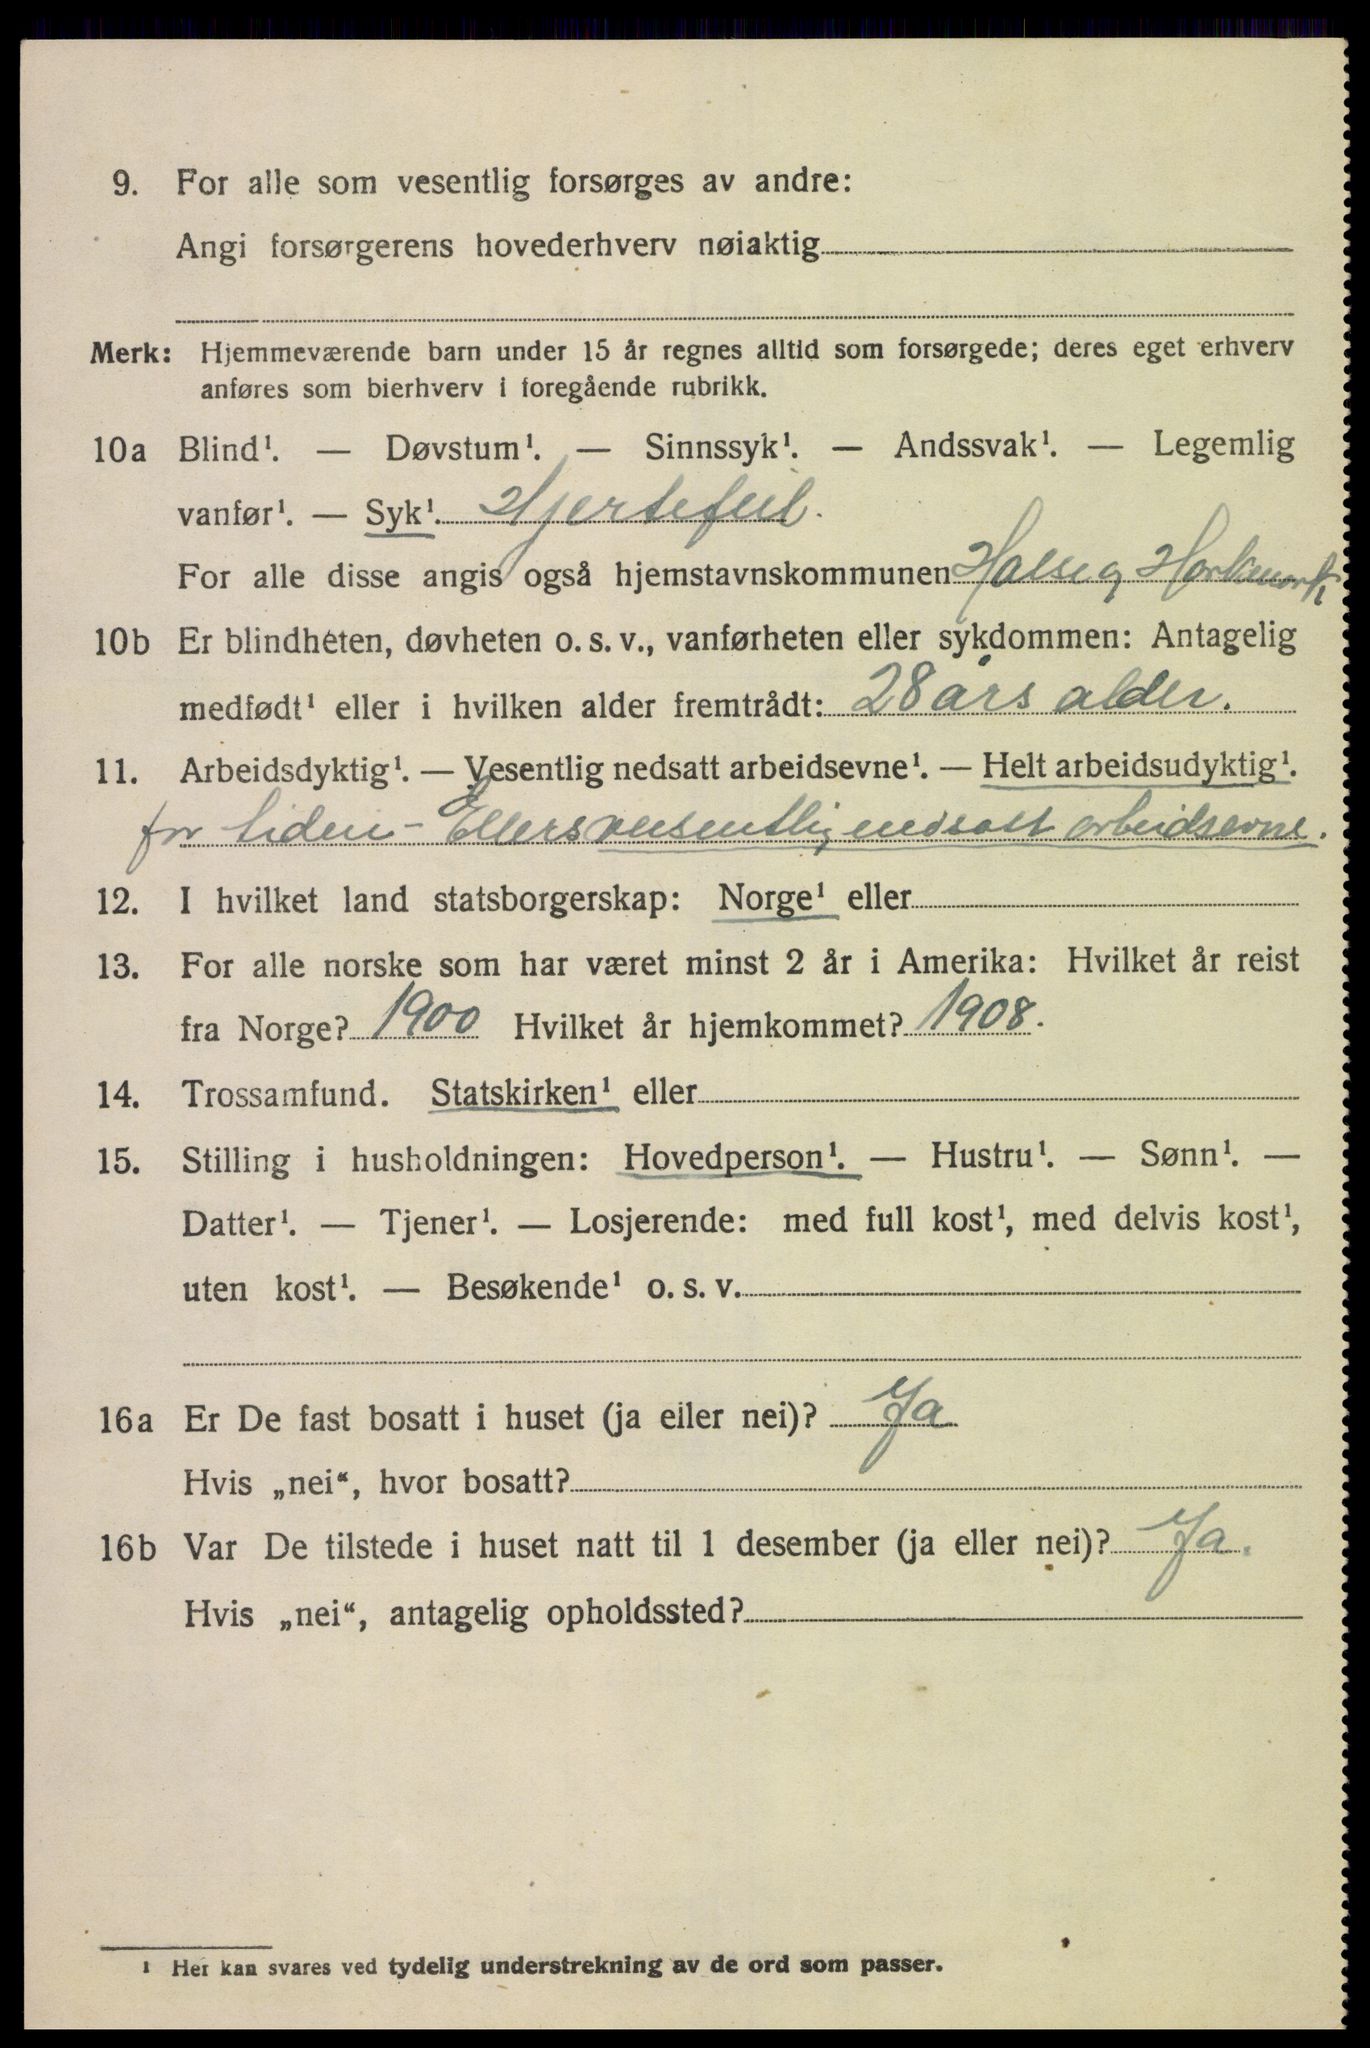 9. For alle som vesentlig forsørges av andre:
Angi forsørgerens hovederhverv nøiaktig
Merk: Hjemmeværende barn under 15 år regnes alltid som forsørgede; deres eget erhverv
anføres som bierhverv i foregående rubrikk.
10a Blind¹. — Døvstum¹. — Sinnssyk¹. — Andssvak¹. — Legemlig
vanfør¹. — Syk¹. Hjertefeil.
For alle disse angis også hjemstavnskommunen Halse og Harkmark
10b Er blindheten, døvheten o. s. v., vanførheten eller sykdommen: Antagelig
medfødt¹ eller i hvilken alder fremtrådt: 28 års alder.
11. Arbeidsdyktig¹. — Vesentlig nedsatt arbeidsevne¹. — Helt arbeidsudyktig¹.
for tiden - Ellers vesentlig nedsatt arbeidsevne.
12. I hvilket land statsborgerskap: Norge¹ eller
13. For alle norske som har været minst 2 år i Amerika: Hvilket år reist
fra Norge? 1900 Hvilket år hjemkommet? 1908.
14. Trossamfund. Statskirken¹ eller
15. Stilling i husholdningen: Hovedperson¹. — Hustru¹. — Sønn¹. —
Datter¹. — Tjener¹. — Losjerende: med full kost¹, med delvis kost¹,
uten kost¹. — Besøkende¹ o. s. v.
16a Er De fast bosatt i huset (ja eller nei)? Ja
Hvis „nei“, hvor bosatt?
16b Var De tilstede i huset natt til 1 desember (ja eller nei)? Ja.
Hvis „nei“, antagelig opholdssted?
¹ Her kan svares ved tydelig understrekning av de ord som passer.